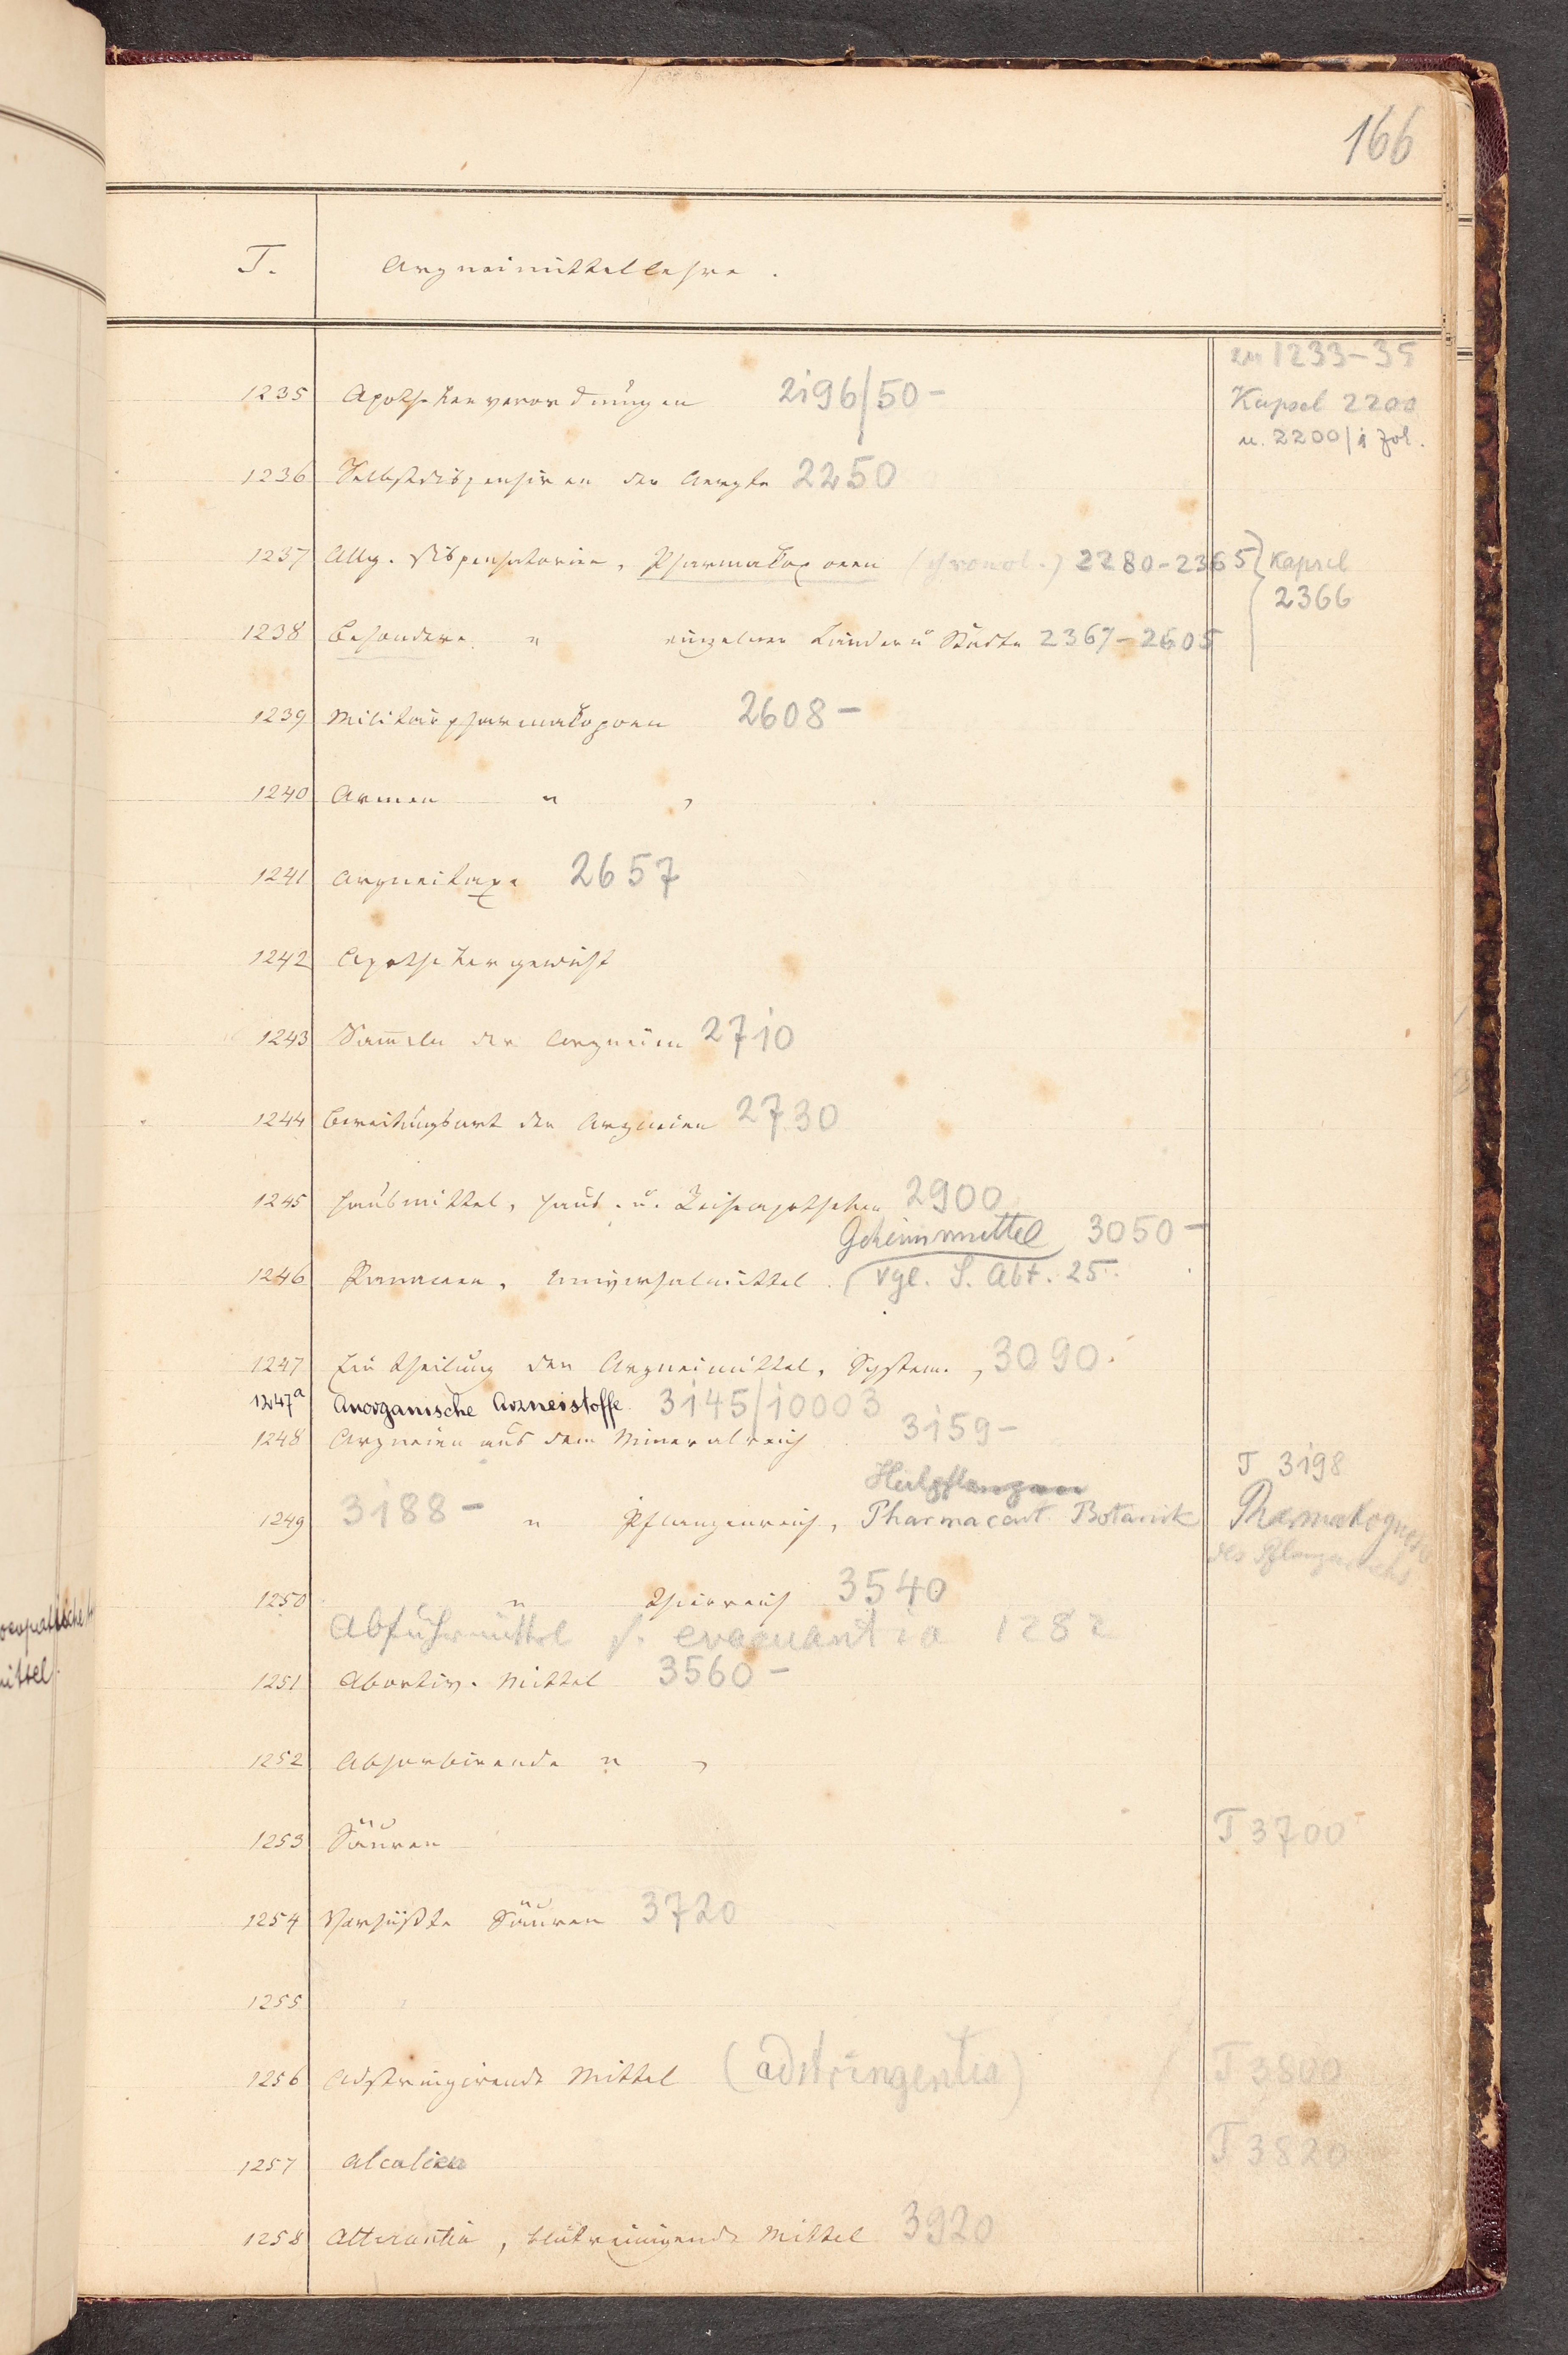 166
T. Arzneimittellehre.
zu 1233-35
1235 Apothekenverordnungen 2196/50-
Kapsel 2200
u. 2200/1 fol.
1236 Selbstdispensiren der Aerzte 2250
1237 Allg. Dispensatorien, Pharmakopoeen (chronol.) 2280-2365 } Kapsel
2366
1238 Besondere " einzelner Länder u Städte 2367-2605
1239 Militairpharmakopoeen 2608-
1240 Armen " ,
1241 Arzneitaxe 2657
1242 Apothekergewicht
1243 Sam̄eln der Arzneien 2710
1244 Bereitungsart der Arzneien 2730
1245 Hausmittel, Haus- u. Reiseapotheken 2900
Geheimmittel 3050-
1246 Panaceen, Universalmittel. (vgl. S. Abt. 25.
1247 Eintheilung der Arzneimittel, System., 3090.
1247a Anorganische Arzneistoffe. 3145/10003
1248 Arzneien aus dem Mineralreich 3159-
Heilpflanzen
T 3198
1249 3188- " Pflanzenreich, Pharmaceut. Botanik
Pharmakognosie
des Pflanzenreichs
1250 " Thierreich 3540
Abführmittel s. evacuantia 1282
1251 Abortiv. Mittel 3560-
1252 Absorbirende " ,
1253 Säuren T 3700
1254 Versüßte Säuren 3720
1255
1256 Adstringirende Mittel (adstringentia) T 3800
T 3820
1257 Alcalien
1258 Alterantia, blutreinigende Mittel 3920